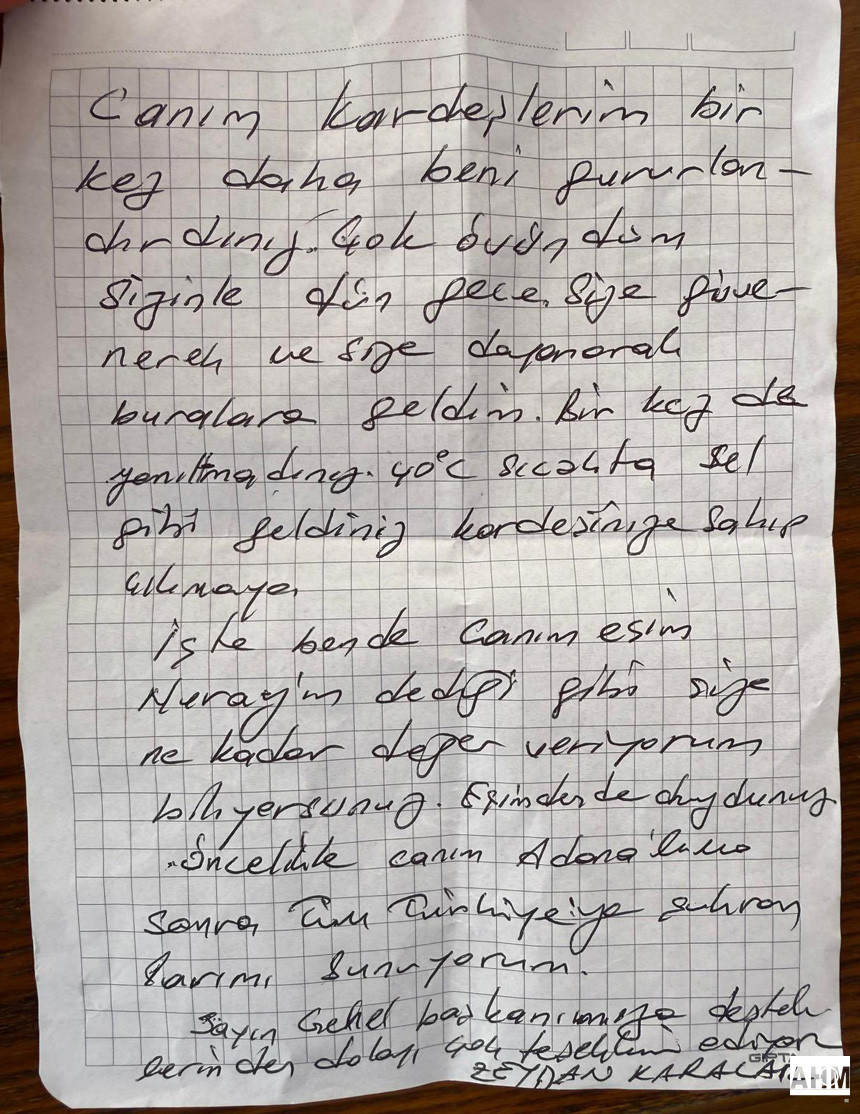 Canım kardeşlerim bir
kez daha beni gururlan-
dırdınız. Çok övündüm
sizinle dün gece. Size güve-
nerek ve size dayanarak
buralara geldim. Bir kez de
yanıltmadınız. 40°C sıcakta sel
gibi geldiniz kardesinize sahip
çıkmaya.
İşte bende canım eşim
Nuray'ın dediği gibi size
ne kadar değer veriyorum
biliyorsunuz. Eşimden de duydunuz.
Öncelikle canım Adana'lıma
sonra tüm Türkiye'ye şükran
larımı sunuyorum.
Sayın Genel başkanımıza destek
lerinden dolayı çok teşekkür ediyorum
ZEYDAN KARALAR
GIPTA
AHM